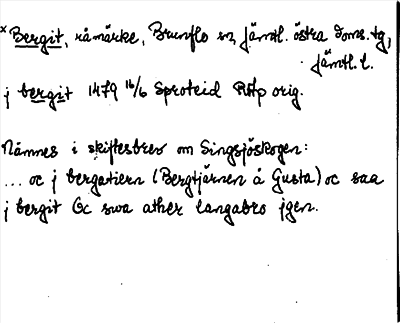 x Bergit, råmärke, Brunflo sn, Jämtl. östra doms. tg,
Jämtl. l.
j bergit 1479 16/6 Sproteid RAp orig.
Nämnes i skiftesbrev om Singsjöskogen:
... oc j bergatiern (Bergtjärnen å Gusta) oc saa
j bergit Oc swa ather langabro jgen.